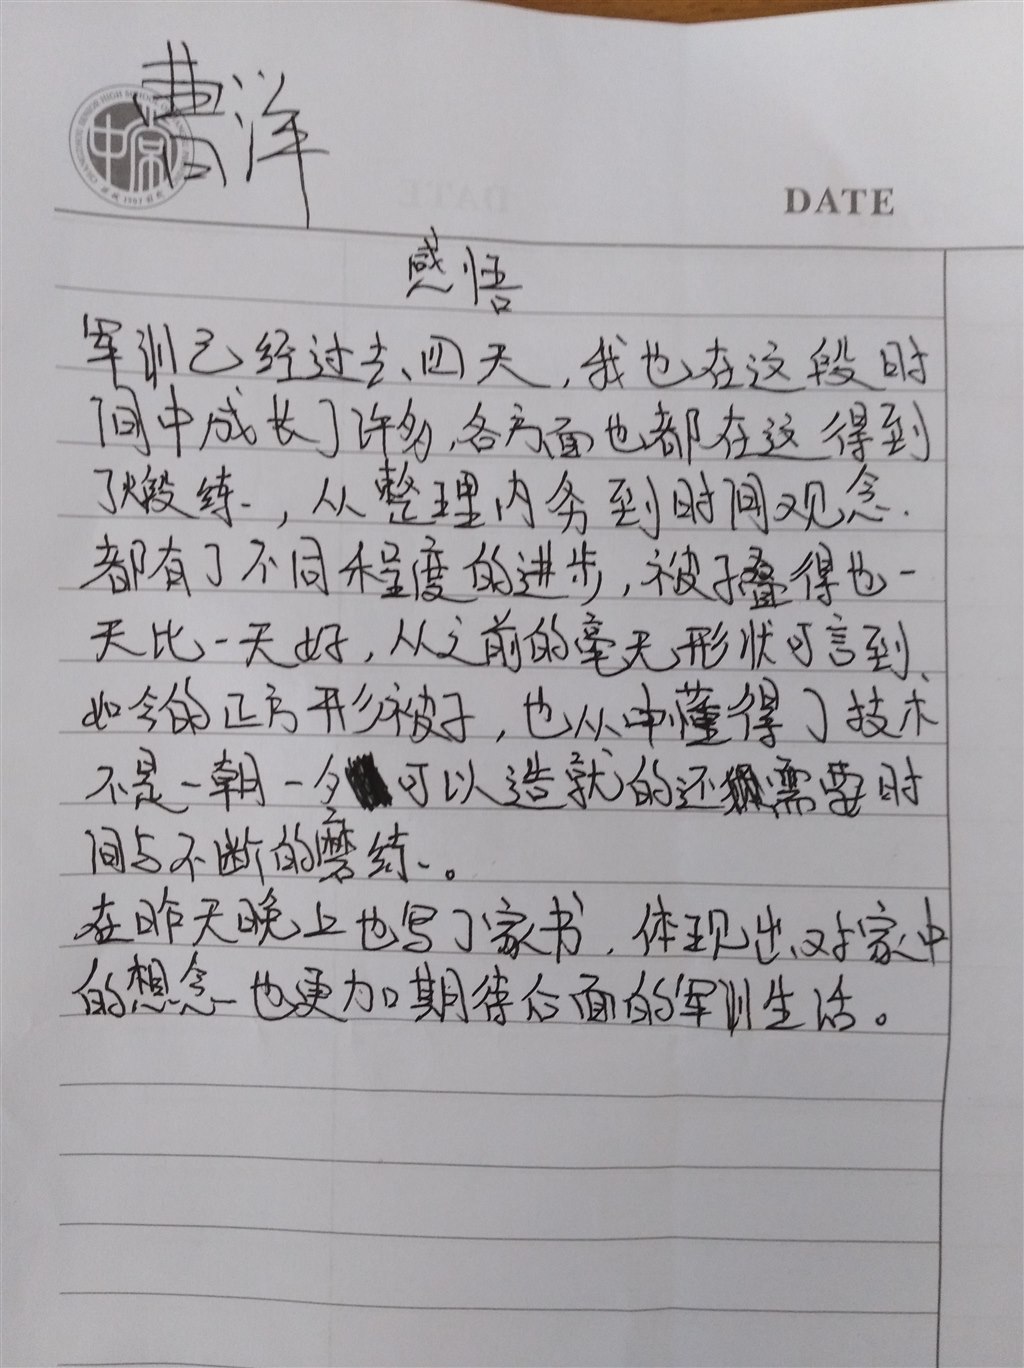 曹洋
DATE
感悟
军训已经过去四天，我也在这段时
间中成长了许多，各方面也都在这得到
了煅练，从整理内务到时间观念.
都有了不同程度的进步，被子叠得也一
天比一天好，从之前的毫无形状可言到
如今的正方形被子，也从中懂得了技术
不是一朝一夕可以造就的还需要时
间与不断的磨练。
在昨天晚上也写了家书，体现出对家中
的想念也更加期待后面的军训生活。